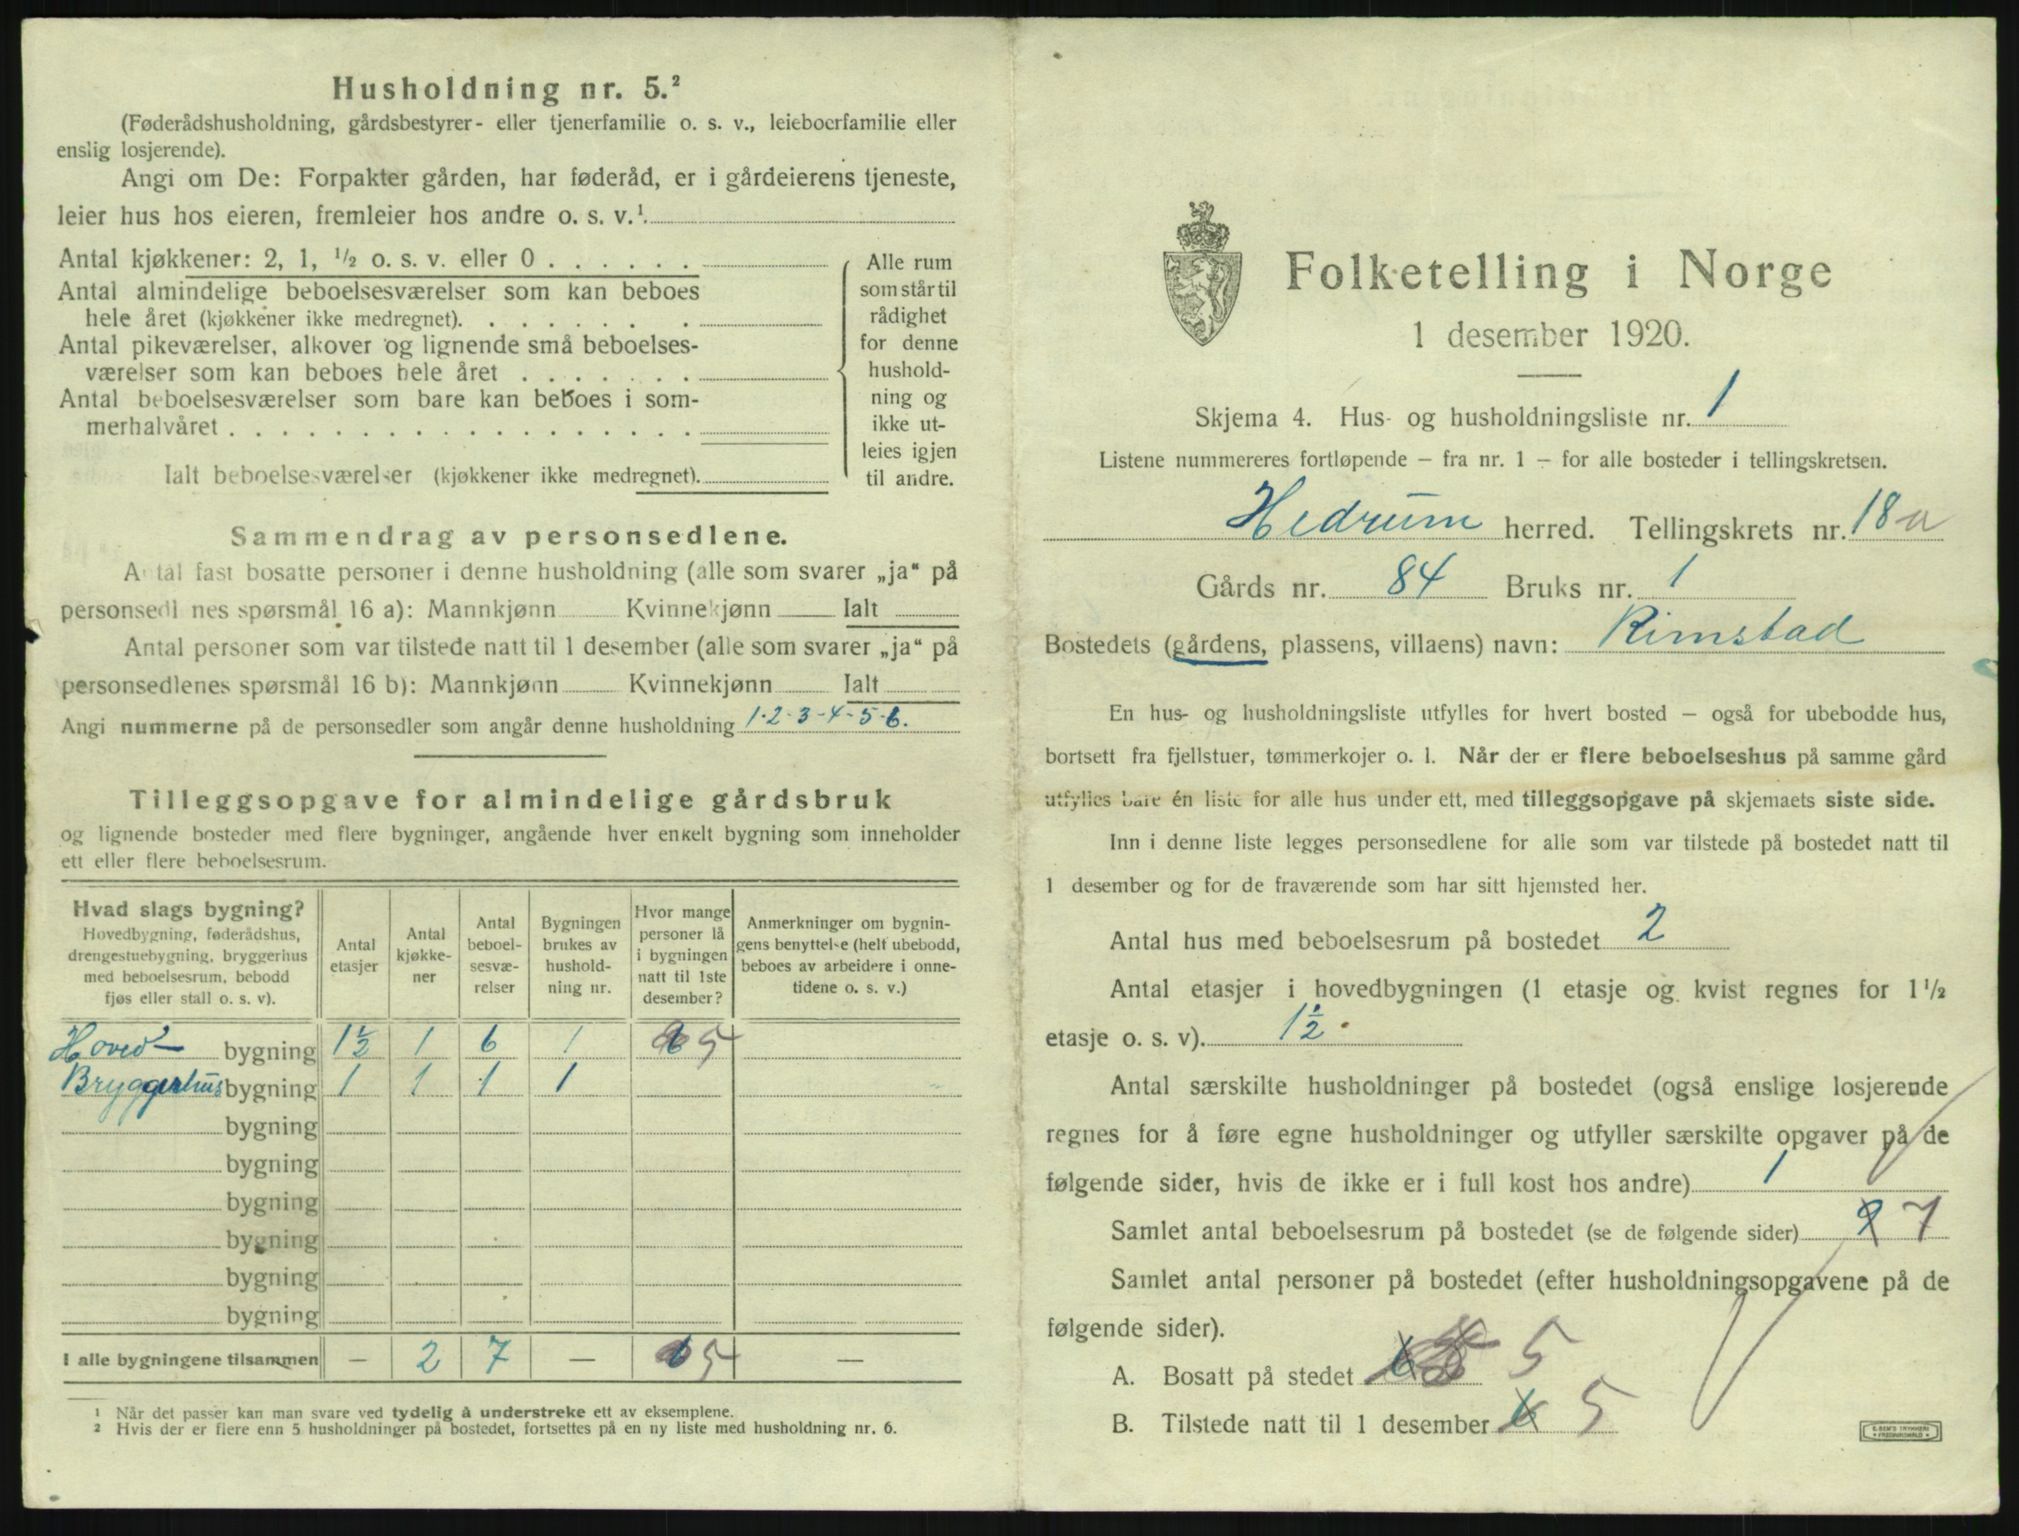 Husholdning nr. 5.²
(Føderådshusholdning, gårdsbestyrer- eller tjenerfamilie o. s. v., leieboerfamilie eller
enslig losjerende).
Angi om De: Forpakter gården, har føderåd, er i gårdeierens tjeneste,
leier hus hos eieren, fremleier hos andre o. s. v.¹.
Antal kjøkkener: 2, 1, ¹/₂ o. s. v. eller 0 . . . . . .
Antal almindelige beboelsesværelser som kan beboes
hele året (kjøkkener ikke medregnet). . . . . . . .
Antal pikeværelser, alkover og lignende små beboelses-
værelser som kan beboes hele året . . . . . . .
Antal beboelsesværelser som bare kan beboes i som-
merhalvåret . . . . . . . . . . . . . . . . . .
Ialt beboelsesværelser (kjøkkener ikke medregnet).
Alle rum
som står til
rådighet
for denne
hushold-
ning og
ikke ut-
leies igjen
til andre.
Sammendrag av personsedlene.
Antal fast bosatte personer i denne husholdning (alle som svarer „ja“ på
personsedlenes spørsmål 16 a): Mannkjønn Kvinnekjønn Ialt
Antal personer som var tilstede natt til 1 desember (alle som svarer „ja“ på
personsedlenes spørsmål 16 b): Mannkjønn Kvinnekjønn Ialt
Angi nummerne på de personsedler som angår denne husholdning 1-2-3-4-5-6.
Tilleggsopgave for almindelige gårdsbruk
og lignende bosteder med flere bygninger, angående hver enkelt bygning som inneholder
ett eller flere beboelsesrum.
Hvad slags bygning?
Hovedbygning, føderådshus,
drengestuebygning, bryggerhus
med beboelsesrum, bebodd
fjøs eller stall o. s. v).
Antal
etasjer
Antal
kjøkke-
ner
Antal
beboel-
sesvæ-
relser
Bygningen
brukes av
hushold-
ning nr.
Hvor mange
personer lå
i bygningen
natt til 1ste
desember?
Anmerkninger om bygnin-
gens benyttelse (helt ubebodd,
beboes av arbeidere i onne-
tidene o. s. v.)
Hoved- bygning 1½ 1 6 1 6 5
Bryggerhus bygning 1 1 1 1
bygning
bygning
bygning
bygning
bygning
bygning
I alle bygningene tilsammen — 2 7 — 6 5 —
¹ Når det passer kan man svare ved tydelig å understreke ett av eksemplene.
² Hvis der er flere enn 5 husholdninger på bostedet, fortsettes på en ny liste med husholdning nr. 6.
Folketelling i Norge
1 desember 1920.
Skjema 4. Hus- og husholdningsliste nr. 1
Listene nummereres fortløpende – fra nr. 1 – for alle bosteder i tellingskretsen.
Hedrum herred. Tellingskrets nr. 18 a
Gårds nr. 84 Bruks nr. 1
Bostedets (gårdens, plassens, villaens) navn: Rimstad
En hus- og husholdningsliste utfylles for hvert bosted – også for ubebodde hus,
bortsett fra fjellstuer, tømmerkojer o. l. Når der er flere beboelseshus på samme gård
utfylles bare én liste for alle hus under ett, med tilleggsopgave på skjemaets siste side.
Inn i denne liste legges personsedlene for alle som var tilstede på bostedet natt til
1 desember og for de fraværende som har sitt hjemsted her.
Antal hus med beboelsesrum på bostedet 2
Antal etasjer i hovedbygningen (1 etasje og kvist regnes for 1¹/₂
etasje o. s. v). 1½
Antal særskilte husholdninger på bostedet (også enslige losjerende
regnes for å føre egne husholdninger og utfyller særskilte opgaver på de
følgende sider, hvis de ikke er i full kost hos andre) 1
Samlet antal beboelsesrum på bostedet (se de følgende sider) 9 7
Samlet antal personer på bostedet (efter husholdningsopgavene på de
følgende sider).
A. Bosatt på stedet 6 5 5
B. Tilstede natt til 1 desember 6 5